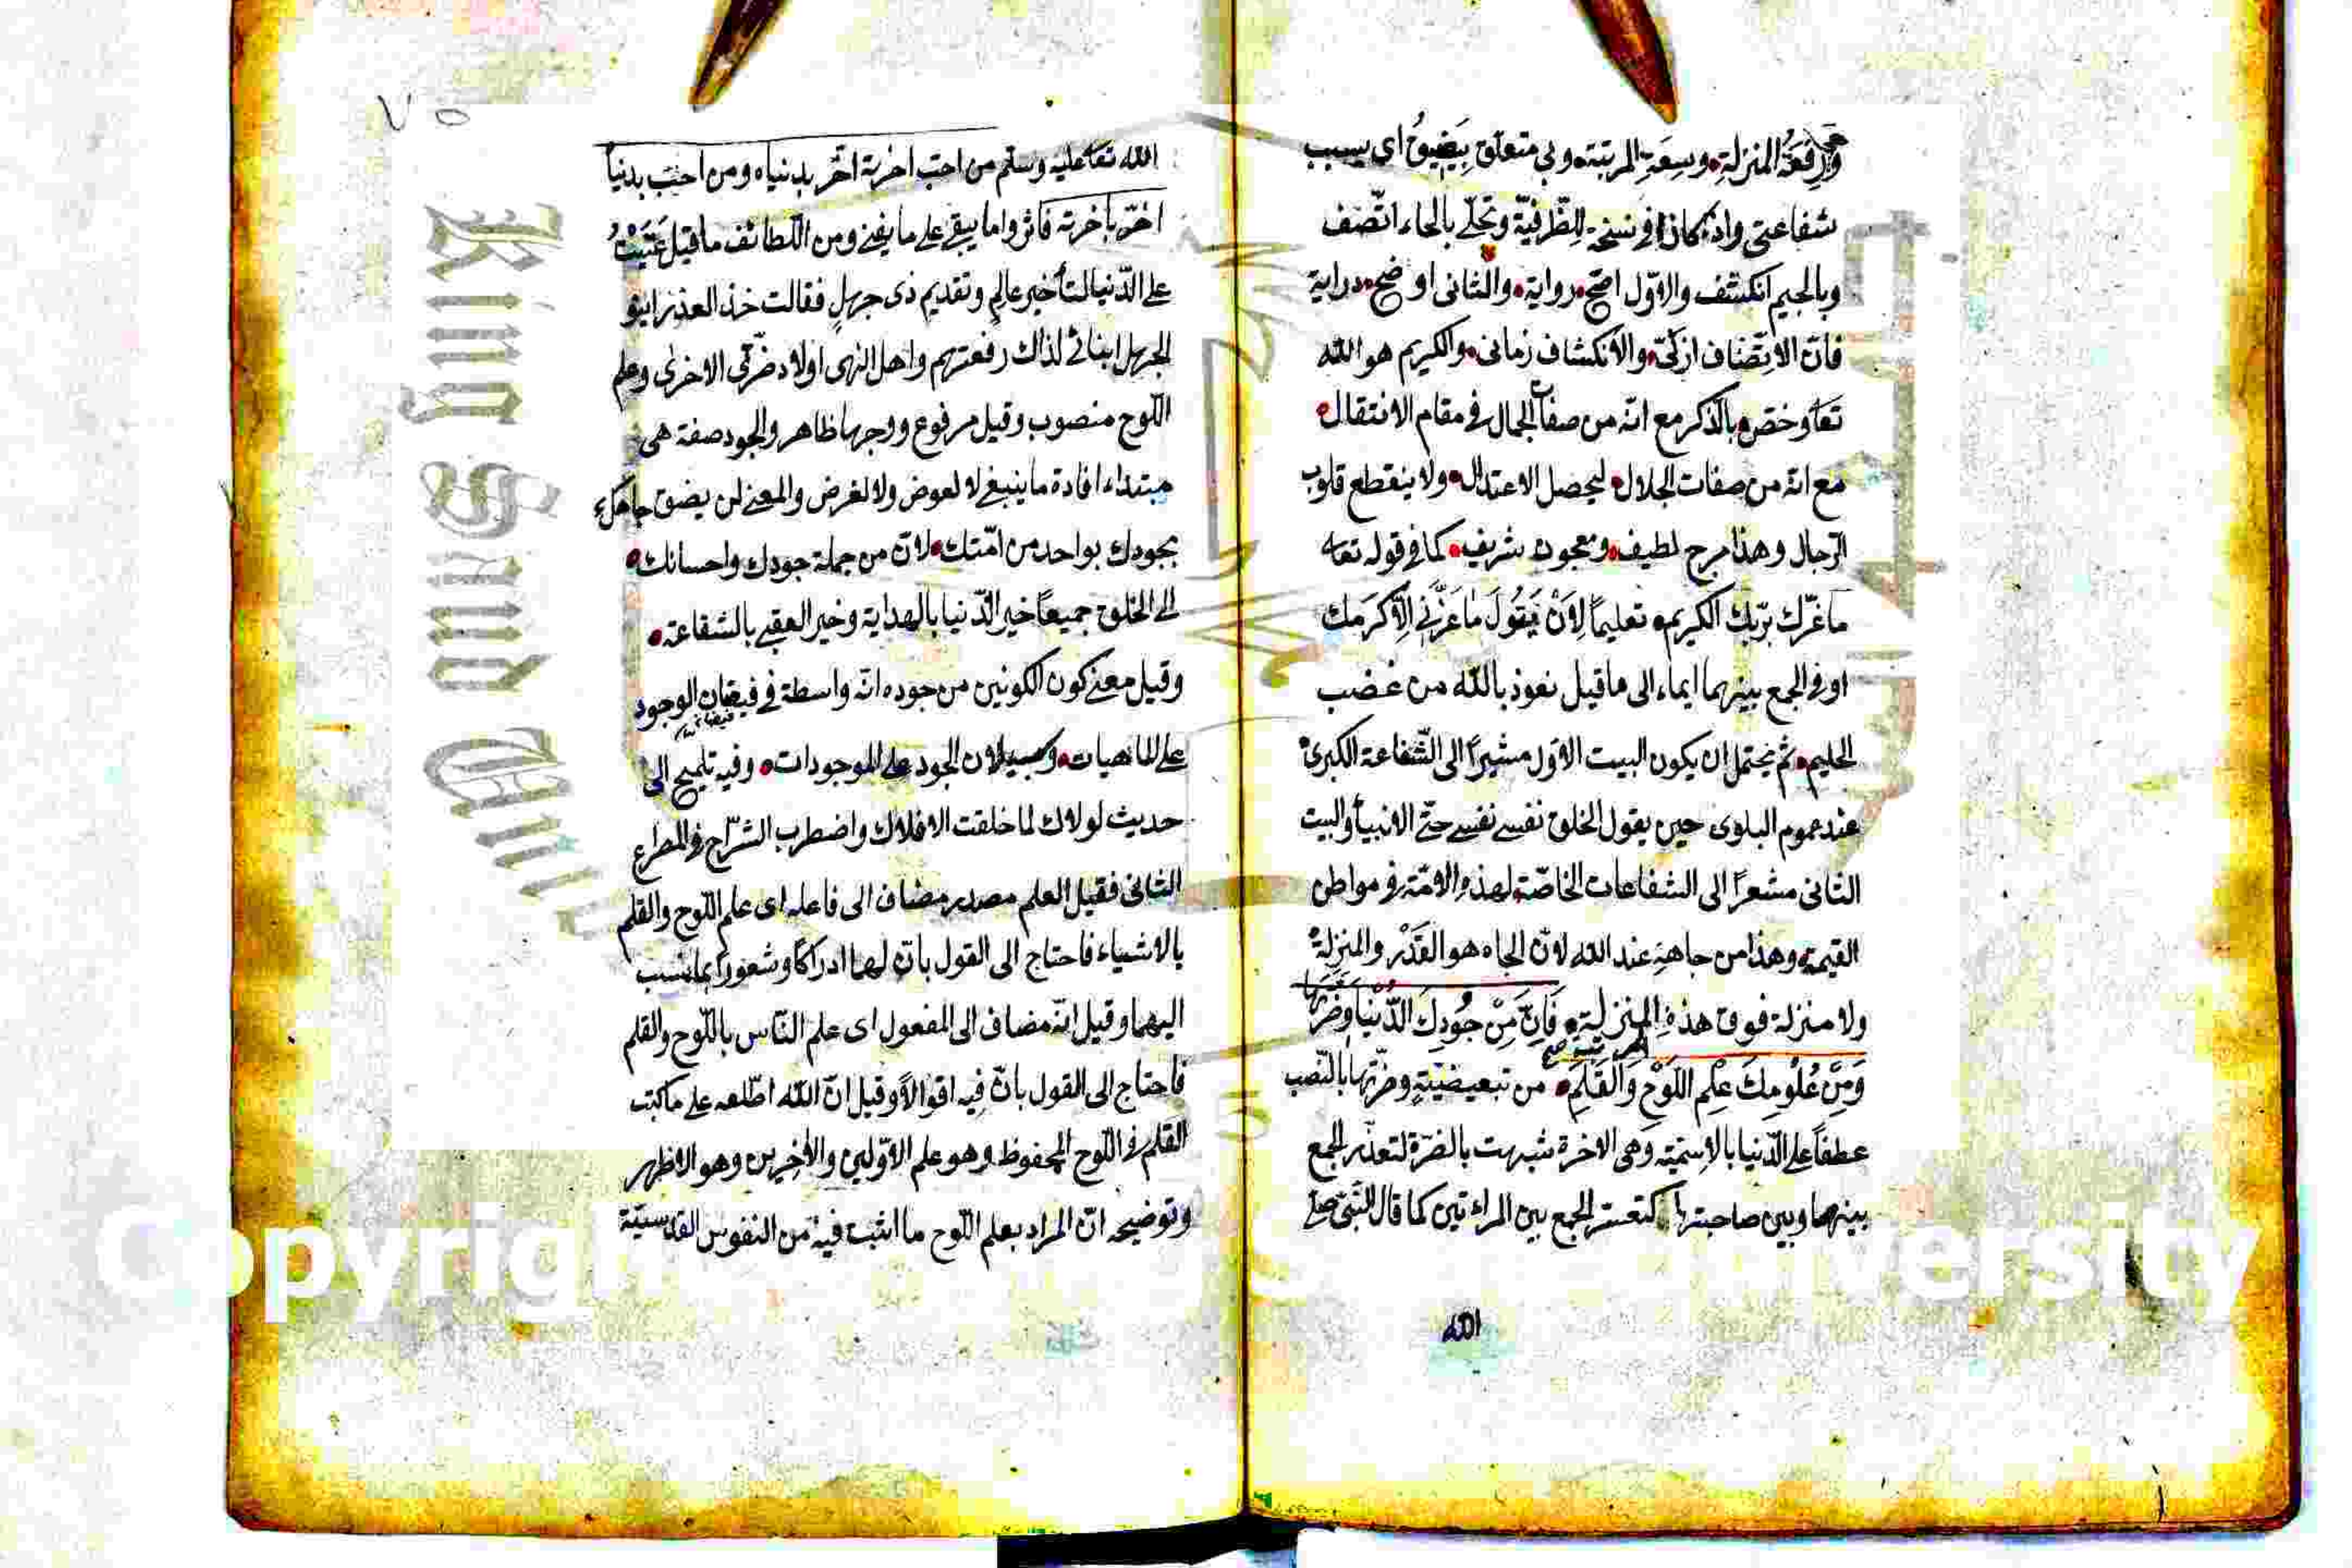 ورفعة المنزلة وسعة المرتبة وبى متعلق بيضيق اى بسبب
شفاعتى واذا كان فى نسخة للظرفية وتحلى بالحاء اتصف
وبالجيم انكشف والاول اصح رواية والثانى اوضح دراية
فان الاتصاف ازلى والانكشاف زمانى والكريم هو الله
تعا وخص بالذكر مع انه من صفات الجمال فى مقام الانتقال
مع انه من صفات الجلال ليحصل الاعتدال ولا ينقطع قلوب
الرجال وهذا مزج لطيف ومعجون شريف كما فى قوله تعا
ما غرّك بربّك الكريم تعليماً لِاَنْ يَقُولَ ما غرّنى الا كرمك
او فى الجمع بينهما ايماء الى ما قيل نعوذ بالله من غضب
الحليم ثم يحتمل ان يكون البيت الاول مشيراً الى الشفاعة الكبرى
عند عموم البلوى حين يقول الخلق نفسى نفسى حتى الانبياء والبيت
الثانى مشعراً الى الشفاعات الخاصة لهذه الامة فى مواطن
القيمة وهذا من جاهه عند الله لان الجاه هو القدر والمنزلة
ولا منزلة فوق هذه المنزلة فَاِنَّ مِنْ جُودِكَ الدُّنْيَا وَضَرَّتَهَا
وَمِنْ عُلُومِكَ عِلْمِ اللَّوْحِ وَالْقَلَمِ من تبعيضية وضرّتها بالنصب
عطفاً على الدنيا بالاسمية وهى الاخرة شبهت بالضرة لتعذر الجمع
بينهما وبين صاحبتها كتعسر الجمع بين المراتين كما قال النبى صلى
الله
٧٥
الله تعا عليه وسلم من احب اخرته اضر بدنياه ومن احب بدنياه
اضر باخرته فاثروا ما يبقى على ما يفنى ومن اللطائف ما قيل عَتَبْتُ
على الدنيا لتأخير عالم وتقديم ذى جهل فقالت خذ العذرا بنو
الجهل ابنائى لذاك رفعتهم واهل النهى اولاد ضرّتى الاخرى وعلم
اللوح منصوب وقيل مرفوع ووجهها ظاهر والجود صفة هى
مبتداء افادة ما ينبغى لا لعوض ولا لغرض والمعنى لن يضق جاهك
بجودك بواحد من امتك لان من جملة جودك واحسانك
الى الخلق جميعاً خير الدنيا بالهداية وخير العقبى بالشفاعة
وقيل معنى كون الكونين من جوده انه واسطة فى فيضان الوجود
على الماهيات الجود على الموجودات وفيه تلميح الى
حديث لولاك لما خلقت الافلاك واضطرب الشراح فى المصراع
الثانى فقيل العلم مصدر مضاف الى فاعله اى علم اللوح والقلم
بالاشياء فاحتاج الى القول بان لهما ادراكاً وشعوراً بما نسب
اليهما وقيل انه مضاف الى المفعول اى علم الناس باللوح والقلم
فاحتاج الى القول بان فيه اقوالاً وقيل ان الله اطلعه على ما كتب
القلم فى اللوح المحفوظ وهو علم الاولين والاخرين وهو الاظهر
وتوضيحه ان المراد بعلم اللوح ما اثبت فيه من النفوس القدسية
King Saud Univ
Copyright
versity